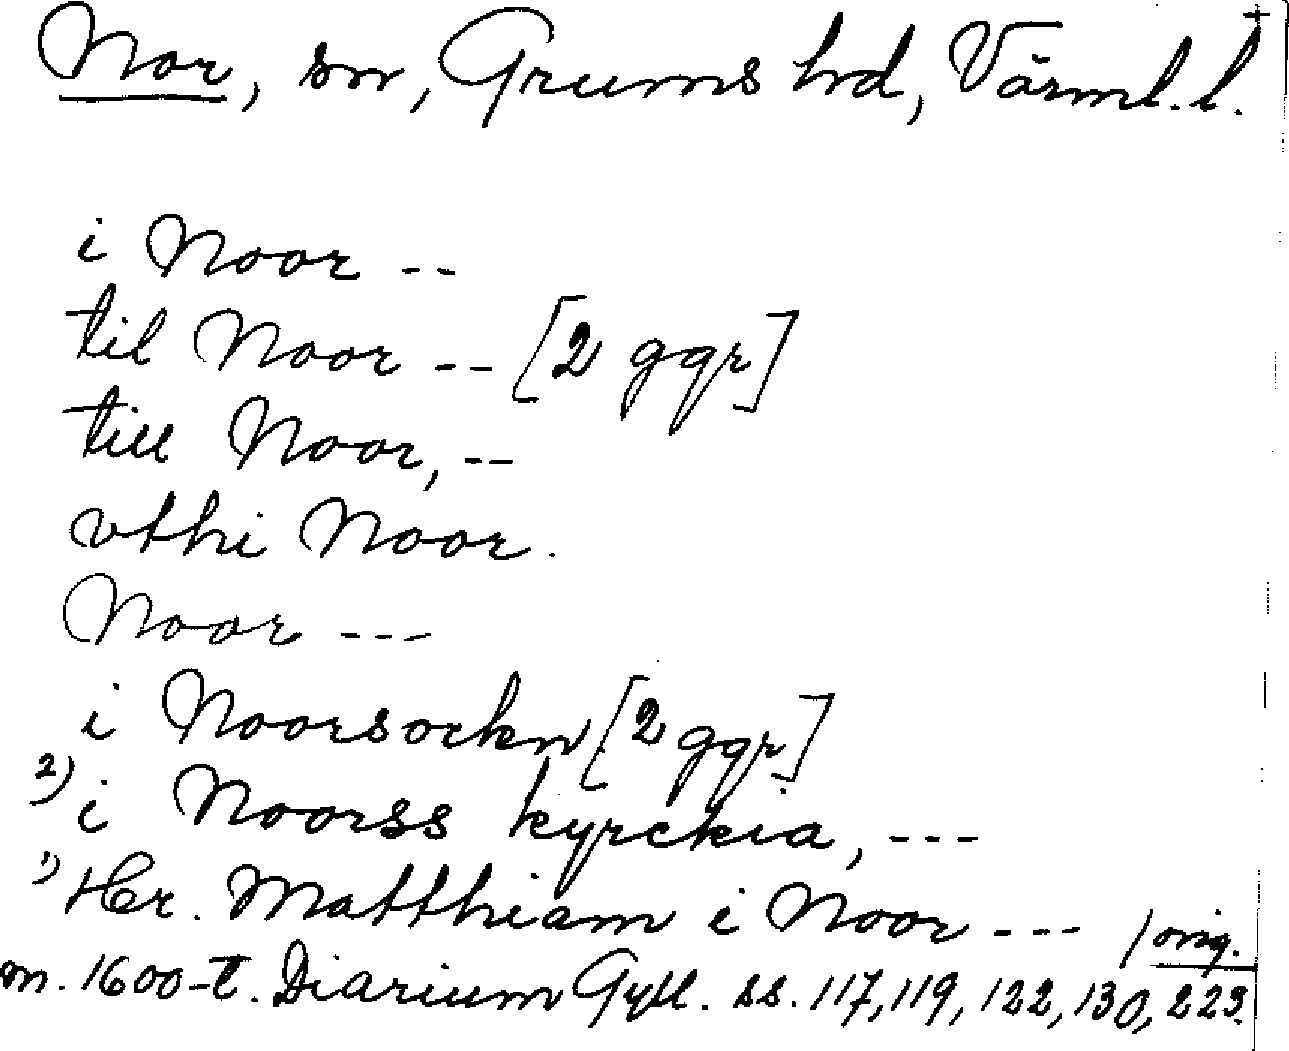 Nor, sn, Grums hd, Värml. l.
i Noor --
til Noor -- [2 ggr]
till Noor, --
vthi Noor.
Noor ---
i Noorsockn [2 ggr]
2) i Noorss kyrckia, ---
1) Her. Matthiam i Noor --- / orig.
m. 1600-t. Diarium Gyll. ss. 117, 119, 122, 130, 223.